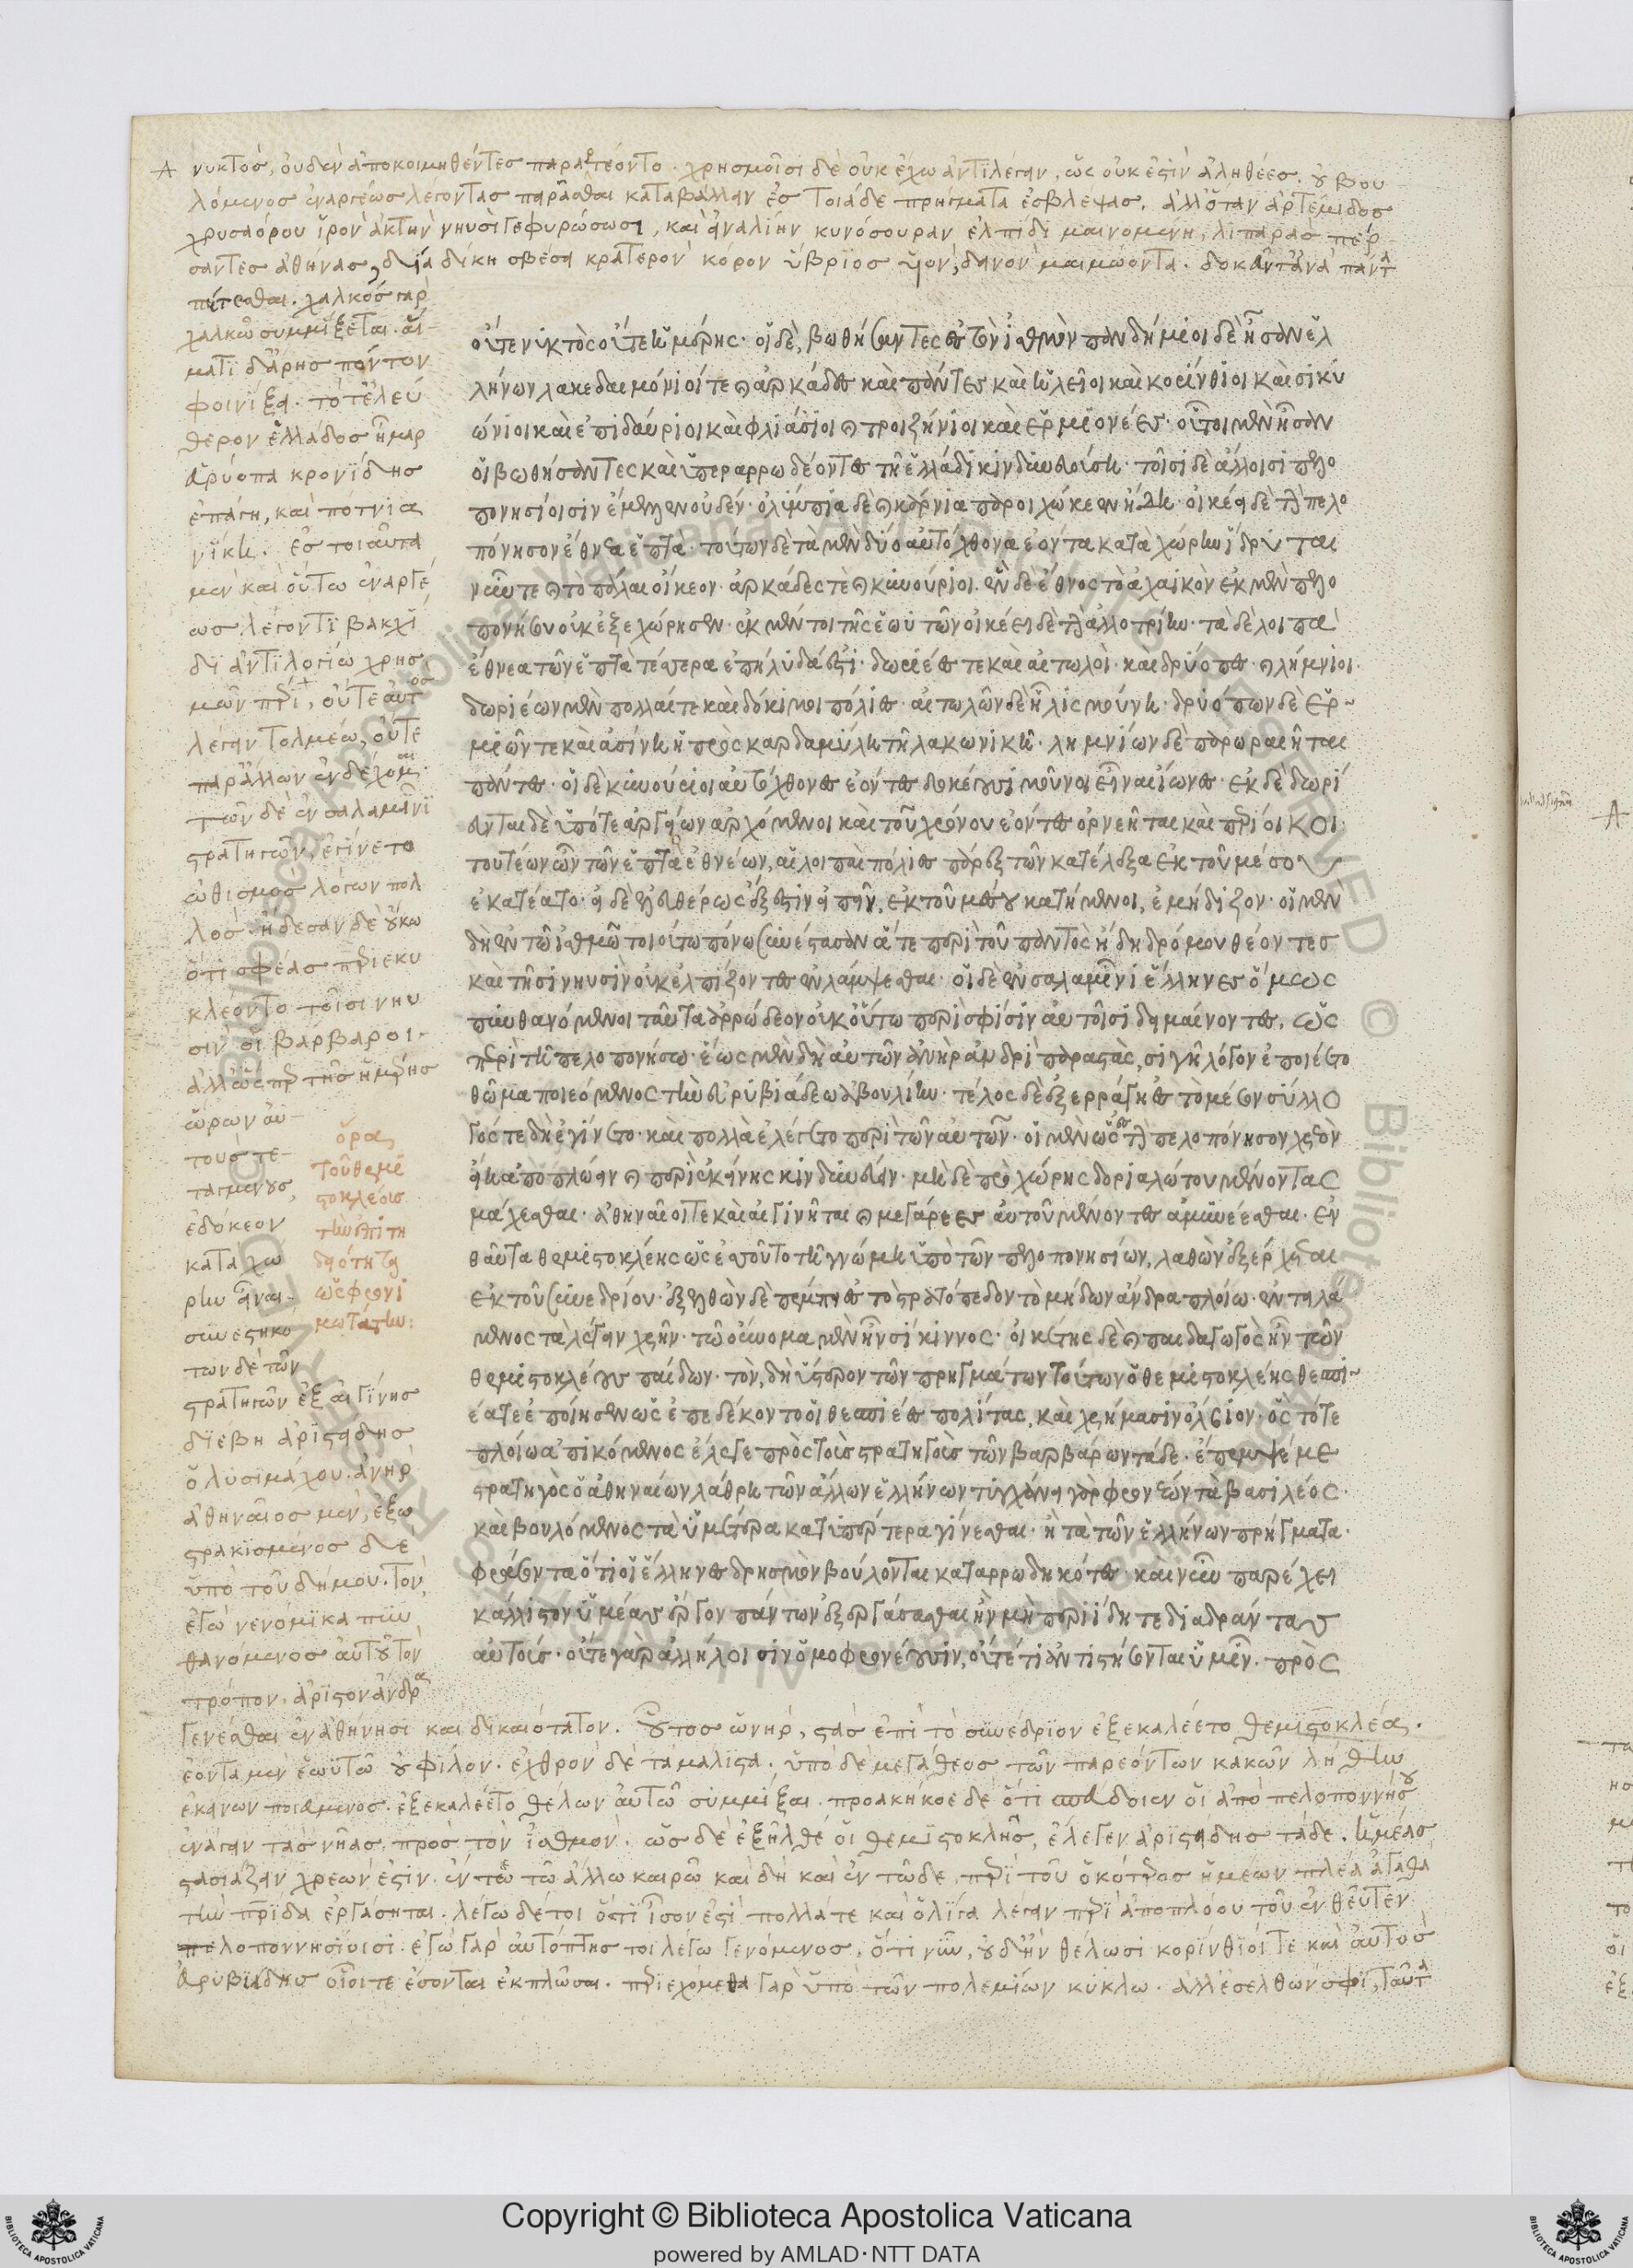 Α νυκτός, οὐδὲν ἀποκοιμηθέντες παραρτέοντο. χρησμοῖσι δὲ οὐκ ἔχω ἀντιλέγειν, ὡς οὐκ εἰσὶν ἀληθέες. οὐ βου
λόμενος ἐναργέως λέγοντας πειρᾶσθαι καταβάλλειν ἐς τοιάδε πρήγματα ἐσβλέψας. ἀλλ' ὅταν ἀρτέμιδος
χρυσαόρου ἱρὸν ἀκτὴν νηυσὶ γεφυρώσωσι, καὶ εἰναλίην κυνόσουραν ἐλπίδι μαινομένη, λιπαρὰς πέρ
σαντες ἀθήνας, δῖα δίκη σβέσει κρατερὸν κόρον ὕβριος υἱὸν, δεινὸν μαιμώοντα. δοκεῦντ' ἀνὰ πάντα
πίεσθαι. χαλκὸς γὰρ
χαλκῷ συμμίξεται. αἵ
ματι δ' ἄρης πόντον
φοινίξει. τότ' ἐλεύ
θερον ἑλλάδος ἦμαρ
εὐρύοπα κρονίδης
ἐπάγει, καὶ πότνια
νίκη. ἐς τοιαῦτα
μὲν καὶ οὕτω ἐναργέ
ως λέγοντι βάκχι
δι ἀντιλογίω χρησ
μῶν πέρι, οὔτε αὐτὸς
λέγειν τολμέω, οὔτε
παρ' ἄλλων ἐνδέχομαι.
τῶν δὲ ἐν σαλαμῖνι
στρατηγῶν, ἐγίνετο
ὠθισμὸς λόγων πολ
λός. ἤδεσαν δὲ οὔκω
ὅτι σφέας περιεκυ
κλέοντο τοῖσι νηυ
σὶν οἱ βάρβαροι.
ἀλλ' ὡς περ τῆς ἡμέρης
ὥρων αὐ
τοὺς τε
ταγμένους,
ἐδόκεον
κατὰ χώ
ρην εἶναι.
συνεστηκό
των δὲ τῶν
στρατηγῶν ἐξ αἰγίνης
διέβη ἀριστείδης
ὁ λυσιμάχου. ἀνὴρ
ἀθηναῖος μὲν, ἐξω
στρακισμένος δὲ
ὑπὸ τοῦ δήμου. τὸν,
ἐγὼ νενόμικα πυν
θανόμενος αὐτοῦ τὸν
τρόπον, ἄριστον ἄνδρα
ὅρα
τοῦ θεμι
στοκλέους
τὴν ἐπιτη
δειότητα
ὡς φρονι
μωτάτην:
οὔτε νυκτὸς οὔτε ἡμέρης. οἱ δὲ, βωθήσαντες ἐς τὸν ἰσθμὸν πανδημεὶ οἵδε ἦσαν ἑλ
λήνων λακεδαιμόνιοί τε καὶ ἀρκάδες καὶ πάντες καὶ ἠλεῖοι καὶ κορίνθιοι καὶ σικυ
ώνιοι καὶ ἐπιδαύριοι καὶ φλιάσιοι καὶ τροιζήνιοι καὶ ἑρμιονέες. οὗτοι μὲν ἦσαν
οἱ βωθήσαντες καὶ ὑπεραρρωδέοντες τῇ ἑλλάδι κινδυνευούσῃ. τοῖσι δὲ ἄλλοισι πελο
πονησίοισιν ἔμελεν οὐδέν. ὀλύμπια δὲ καὶ κάρνια παροιχώκεεν ἤδη. οἰκέει δὲ τὴν πελο
πόνησον ἔθνεα ἑπτά. τούτων δὲ τὰ μὲν δύο αὐτόχθονα ἐόντα κατὰ χώρην ἵδρυται
νῦν τε καὶ τὸ πάλαι οἴκεον. ἀρκάδες τὲ καὶ κυνούριοι. ἓν δὲ ἔθνος τὸ ἀχαιικὸν ἐκ μὲν πελο
πονήσου οὐκ ἐξεχώρησεν. ἐκ μέντοι τῆς ἑωυτῶν οἰκέει δὲ τὴν ἀλλοτρίην. τὰ δὲ λοιπὰ
ἔθνεα τῶν ἑπτὰ τέσσερα ἐπήλυδά ἐστι. δωριέες τε καὶ αἰτωλοὶ. καὶ δρύοπες. καὶ λήμνιοι.
δωριέων μὲν πολλαί τε καὶ δόκιμοι πόλιες. αἰτωλῶν δὲ ἦλις μούνη. δρυόπων δὲ ἑρ
μιών τε καὶ ἀσίνη ἡ πρὸς καρδαμύλη τῇ λακωνικῇ. λημνίων δὲ παρωραιῆται
πάντες. οἱ δὲ κυνούριοι αὐτόχθονες ἐόντες δοκέουσι μοῦνοι εἶναι ἴωνες. ἐκδεδωρί
ευνται δὲ ὑπό τε ἀργείων ἀρχόμενοι καὶ τοῦ χρόνου ἐόντες ὀρνεῆται καὶ περίοικοι.
τουτέων ὦν τῶν ἑπτὰ ἐθνέων, αἱ λοιπαὶ πόλιες πάρεξ τῶν κατέλεξα ἐκ τοῦ μέσου
ἐκατέατο. εἰ δὲ ἐλευθέρως ἔξεστιν εἰπεῖν, ἐκ τοῦ μέσου κατήμενοι, ἐμήδιζον. οἱ μὲν
δὴ ἐν τῷ ἰσθμῷ τοιούτω πόνω συνέστασαν ἅτε περὶ τοῦ παντὸς ἤδη δρόμου θέοντες
καὶ τῇσι νηυσὶν οὐκ ἐλπίζοντες ἐλλάμψεσθαι. οἱ δὲ ἐν σαλαμῖνι ἕλληνες ὅμως
πυνθανόμενοι ταῦτα ἀρρώδεον οὐκ οὕτω περὶ σφίσιν αὐτοῖσι δειμαίνοντες. ὡς
περὶ τῇ πελοπονήσω. ἕως μὲν δὴ αὐτῶν ἀνὴρ ἀνδρὶ παραστὰς, σιγῇ λόγον ἐποιέετο
θῶμα ποιεόμενος τὴν εὐρυβιάδεω ἀβουλίην. τέλος δὲ ἐξερράγη ἐς τὸ μέσον σύλλο
γός τε δὴ ἐγίνετο. καὶ πολλὰ ἐλέγετο περὶ τῶν αὐτῶν. οἱ μὲν ὡς ἐς τὴν πελοπόνησον χρεὸν
εἴη ἀποπλώειν καὶ περὶ ἐκείνης κινδυνεύειν. μὴ δὲ πρὸ χώρης δοριαλώτου μένοντας
μάχεσθαι. ἀθηναῖοι τε καὶ αἰγινῆται καὶ μεγαρέες αὐτοῦ μένοντες ἀμύνεσθαι. ἐν
θαῦτα θεμιστοκλέης ὡς ἑσσοῦτο τῇ γνώμῃ ὑπὸ τῶν πελοπονησίων, λαθὼν ἐξέρχεται
ἐκ τοῦ συνεδρίου. ἐξελθὼν δὲ πέμπει ἐς τὸ στρατόπεδον τὸ μήδων ἄνδρα πλοίω. ἐντειλά
μενος τὰ λέγειν χρῆν. τῷ οὔνομα μὲν ἦν σίκιννος. οἰκέτης δὲ καὶ παιδαγωγὸς ἦν τῶν
θεμιστοκλέους παίδων. τὸν, δὴ ὕστερον τῶν πρηγμάτων τούτων ὁ θεμιστοκλέης θεσπι
έα τε ἐποίησεν ὡς ἐπεδέκοντο οἱ θεσπιέες πολίτας, καὶ χρήμασιν ὄλβιον. ὃς τότε
πλοίω ἀπικόμενος ἔλεγε πρὸς τοὺς στρατηγοὺς τῶν βαρβάρων τάδε. ἔπεμψέ με
στρατηγὸς ὁ ἀθηναίων λάθρη τῶν ἄλλων ἑλλήνων τυγχάνει γὰρ φρονέων τὰ βασιλέος.
καὶ βουλόμενος τὰ ὑμέτερα κατύπερτερα γίνεσθαι. ἢ τὰ τῶν ἑλλήνων πρήγματα.
φράσοντα ὅτι οἱ ἕλληνες δρησμὸν βούλονται καταρρωδηκότες. καὶ νῦν παρέχει
κάλλιστον ὑμέας ἔργον πάντων ἐξεργάσασθαι ἢν μὴ περιίδητε διαδράντας
αὐτούς. οὔτε γὰρ ἀλλήλοισιν ὁμοφρονέουσιν, οὔτέ τι ἀντιστήσονται ὑμῖν. πρὸς
γενέσθαι ἐν ἀθήνησι καὶ δικαιότατον. οὗτος ὡνήρ, στὰς ἐπὶ τὸ συνέδριον ἐξεκαλέετο θεμιστοκλέα.
ἐόντα μὲν ἑωυτῷ οὐ φίλον. ἐχθρὸν δὲ τὰ μάλιστα. ὑπὸ δὲ μεγάθεος τῶν παρεόντων κακῶν λήθην
ἐκείνων ποιεύμενος. ἐξεκαλέετο θέλων αὐτῷ συμμίξαι. προακηκόεε δὲ ὅτι σπεύδοιεν οἱ ἀπὸ πελοποννήσου
ἀνάγειν τὰς νῆας, πρὸς τὸν ἰσθμόν. ὡς δὲ ἐξῆλθέ οἱ θεμιστοκλῆς, ἔλεγεν ἀριστείδης τάδε. ἡμέας
στασιάζειν χρεών ἐστιν. ἔν τεῳ τῷ ἄλλω καιρῷ καὶ δὴ καὶ ἐν τῷδε, περὶ τοῦ ὁκότερος ἡμέων πλέα ἀγαθὰ
τὴν πατρίδα ἐργάσηται. λέγω δέ τοι ὅτι ἶσόν ἐστι πολλά τε καὶ ὀλίγα λέγειν περὶ ἀποπλόου τοῦ ἐνθεῦτεν
πελοποννησίοισι. ἐγὼ γὰρ αὐτόπτης τοι λέγω γενόμενος, ὅτι νῦν, οὐδ' ἢν θέλωσι κορίνθιοί τε καὶ αὐτὸς
εὐρυβιάδης οἷοί τε ἔσονται ἐκπλῶσαι. περιεχόμεθα γὰρ ὑπὸ τῶν πολεμίων κύκλω. ἀλλ' ἐσελθών σφι, ταῦτα
Copyright © Biblioteca Apostolica Vaticana
powered by AMLAD·NTT DATA